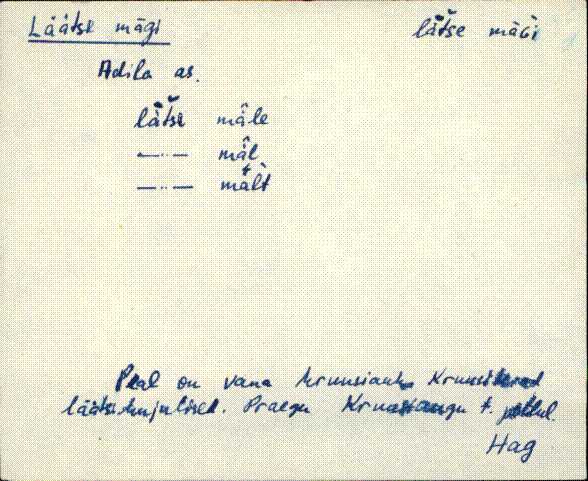 Läätse mägi lätse mägi
Adila as.
lätse mäle
—··— mäl
—··— mält
Peal on vana kruusiauk
läätsekujulised. Praegu t. põllul.
Hag